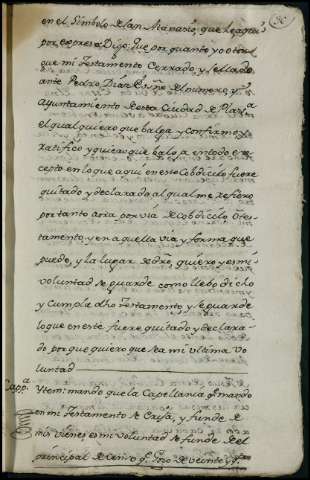 en el Simbolo de san Atanasio, que he aqui
por expreso Digo que por quanto yo otorgue
que mi Testamento Cerrado y sellado
ante Pedro Diaz Ess.no del numero y
Ayuntamiento de esta Ciudad de
el qual quiero que balga y confirmo y
ratifico y quiero que balga en todo ex
cepto en lo que aqui en este Cobdicilo fuere
quitado y declarado, al qual me refiero
por tanto aora por via de Cobdicilo o tes
tamento, y en aquella via y forma que
puedo, y a lugar de dr.o quiero y es mi
voluntad se guarde como llebo dicho
y cumpla dho Testamento y se guarde
lo que en este fuere quitado y declara
do por que quiero que sea mi ultima vo
luntad
Capp.a Ytem: mando que la Capellania q.e mando
en mi Testamento se y funde de
mis vienes es mi voluntad se funde de el
principal de censo q.e de veinte y